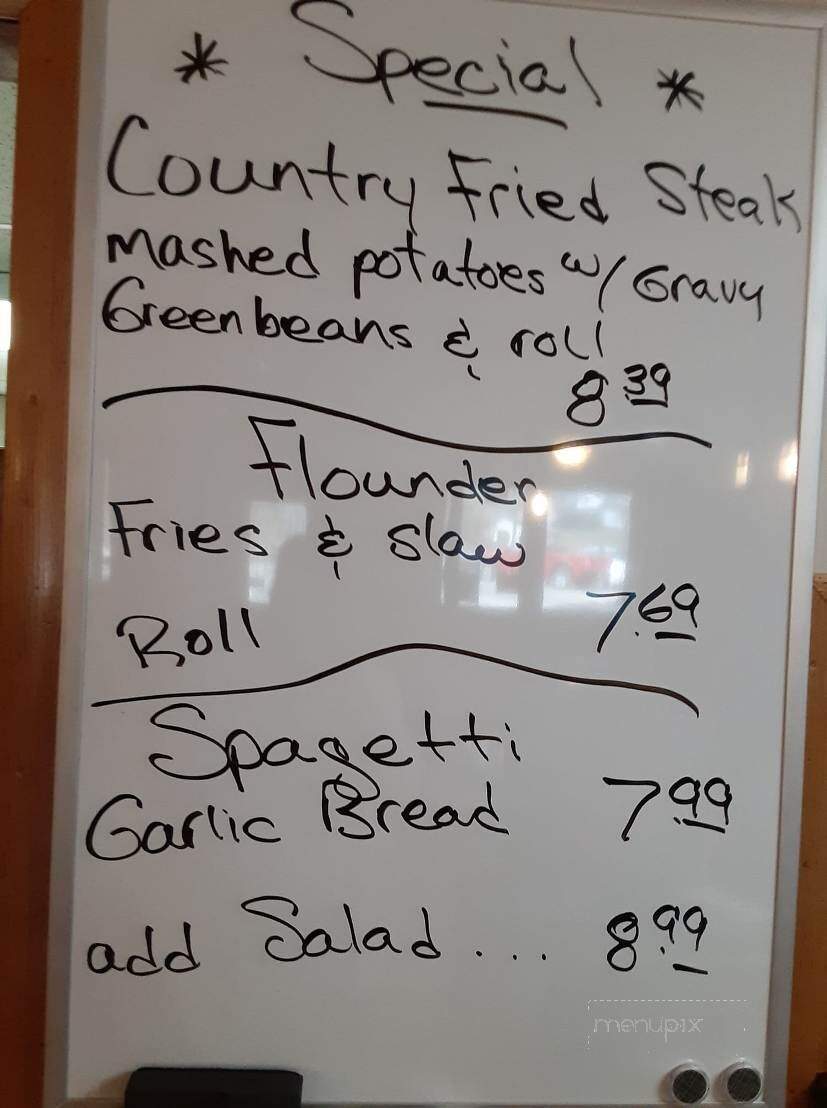 * Special *
Country Fried Steak
mashed potatoes w/ Gravy
Greenbeans & roll
8 39
Flounder
Fries & Slaw
Roll 7.69
Spagetti
Garlic Bread 7.99
add Salad ... 8.99
menupix